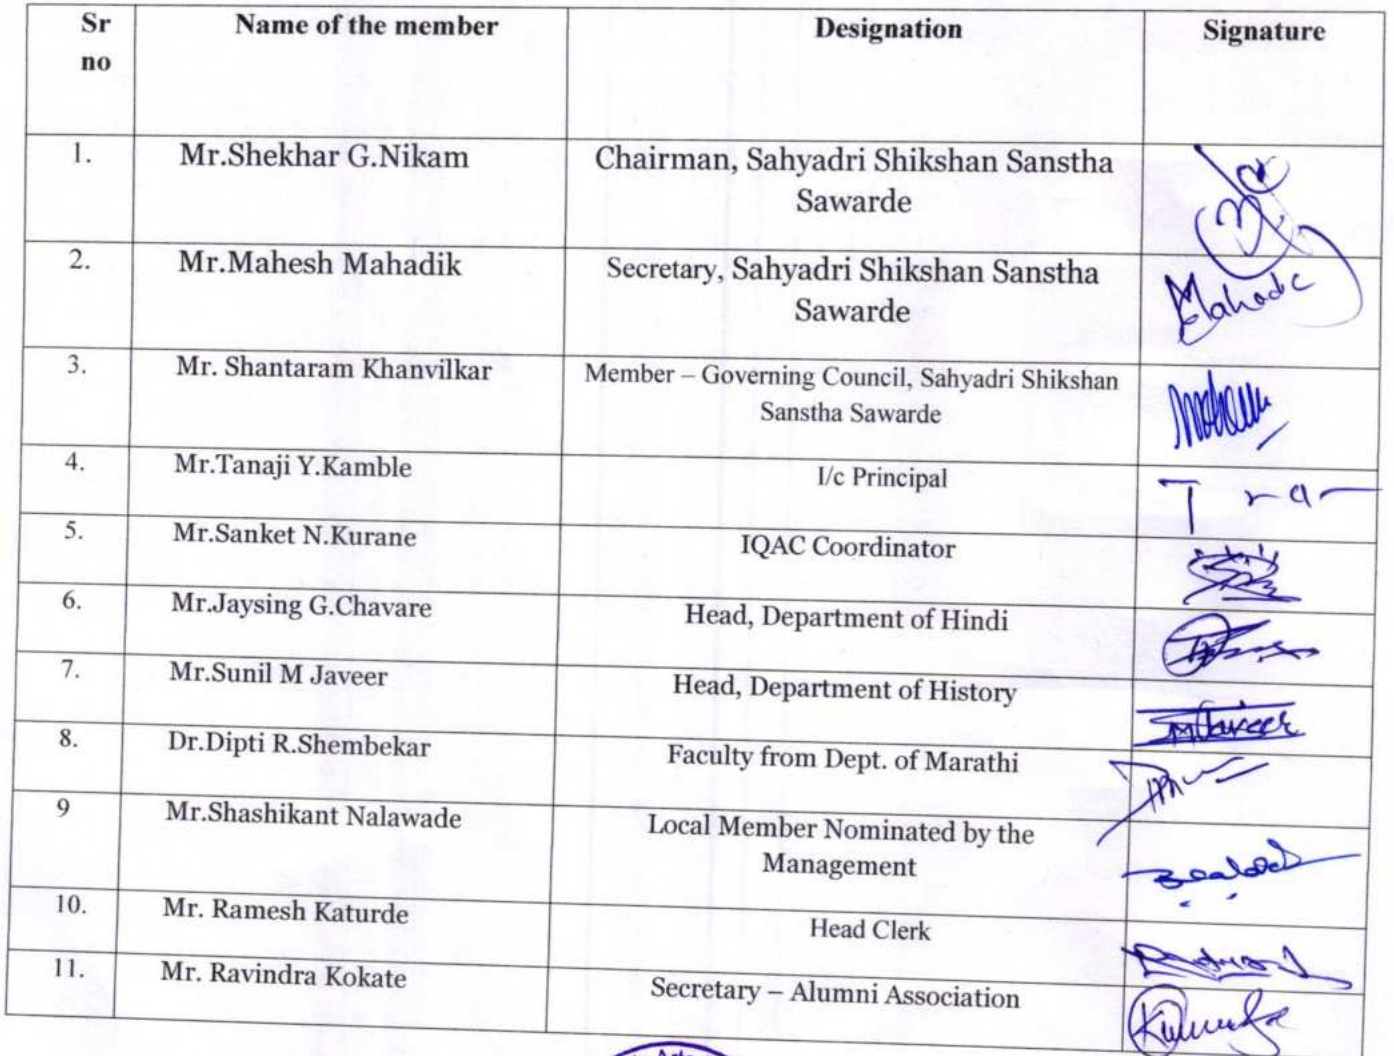 Sr no Name of the member Designation Signature
1. Mr.Shekhar G.Nikam Chairman, Sahyadri Shikshan Sanstha
Sawarde
2. Mr.Mahesh Mahadik Secretary, Sahyadri Shikshan Sanstha
Sawarde
3. Mr. Shantaram Khanvilkar Member – Governing Council, Sahyadri Shikshan
Sanstha Sawarde
4. Mr.Tanaji Y.Kamble I/c Principal
5. Mr.Sanket N.Kurane IQAC Coordinator
6. Mr.Jaysing G.Chavare Head, Department of Hindi
7. Mr.Sunil M Javeer Head, Department of History
8. Dr.Dipti R.Shembekar Faculty from Dept. of Marathi
9 Mr.Shashikant Nalawade Local Member Nominated by the
Management
10. Mr. Ramesh Katurde Head Clerk
11. Mr. Ravindra Kokate Secretary – Alumni Association